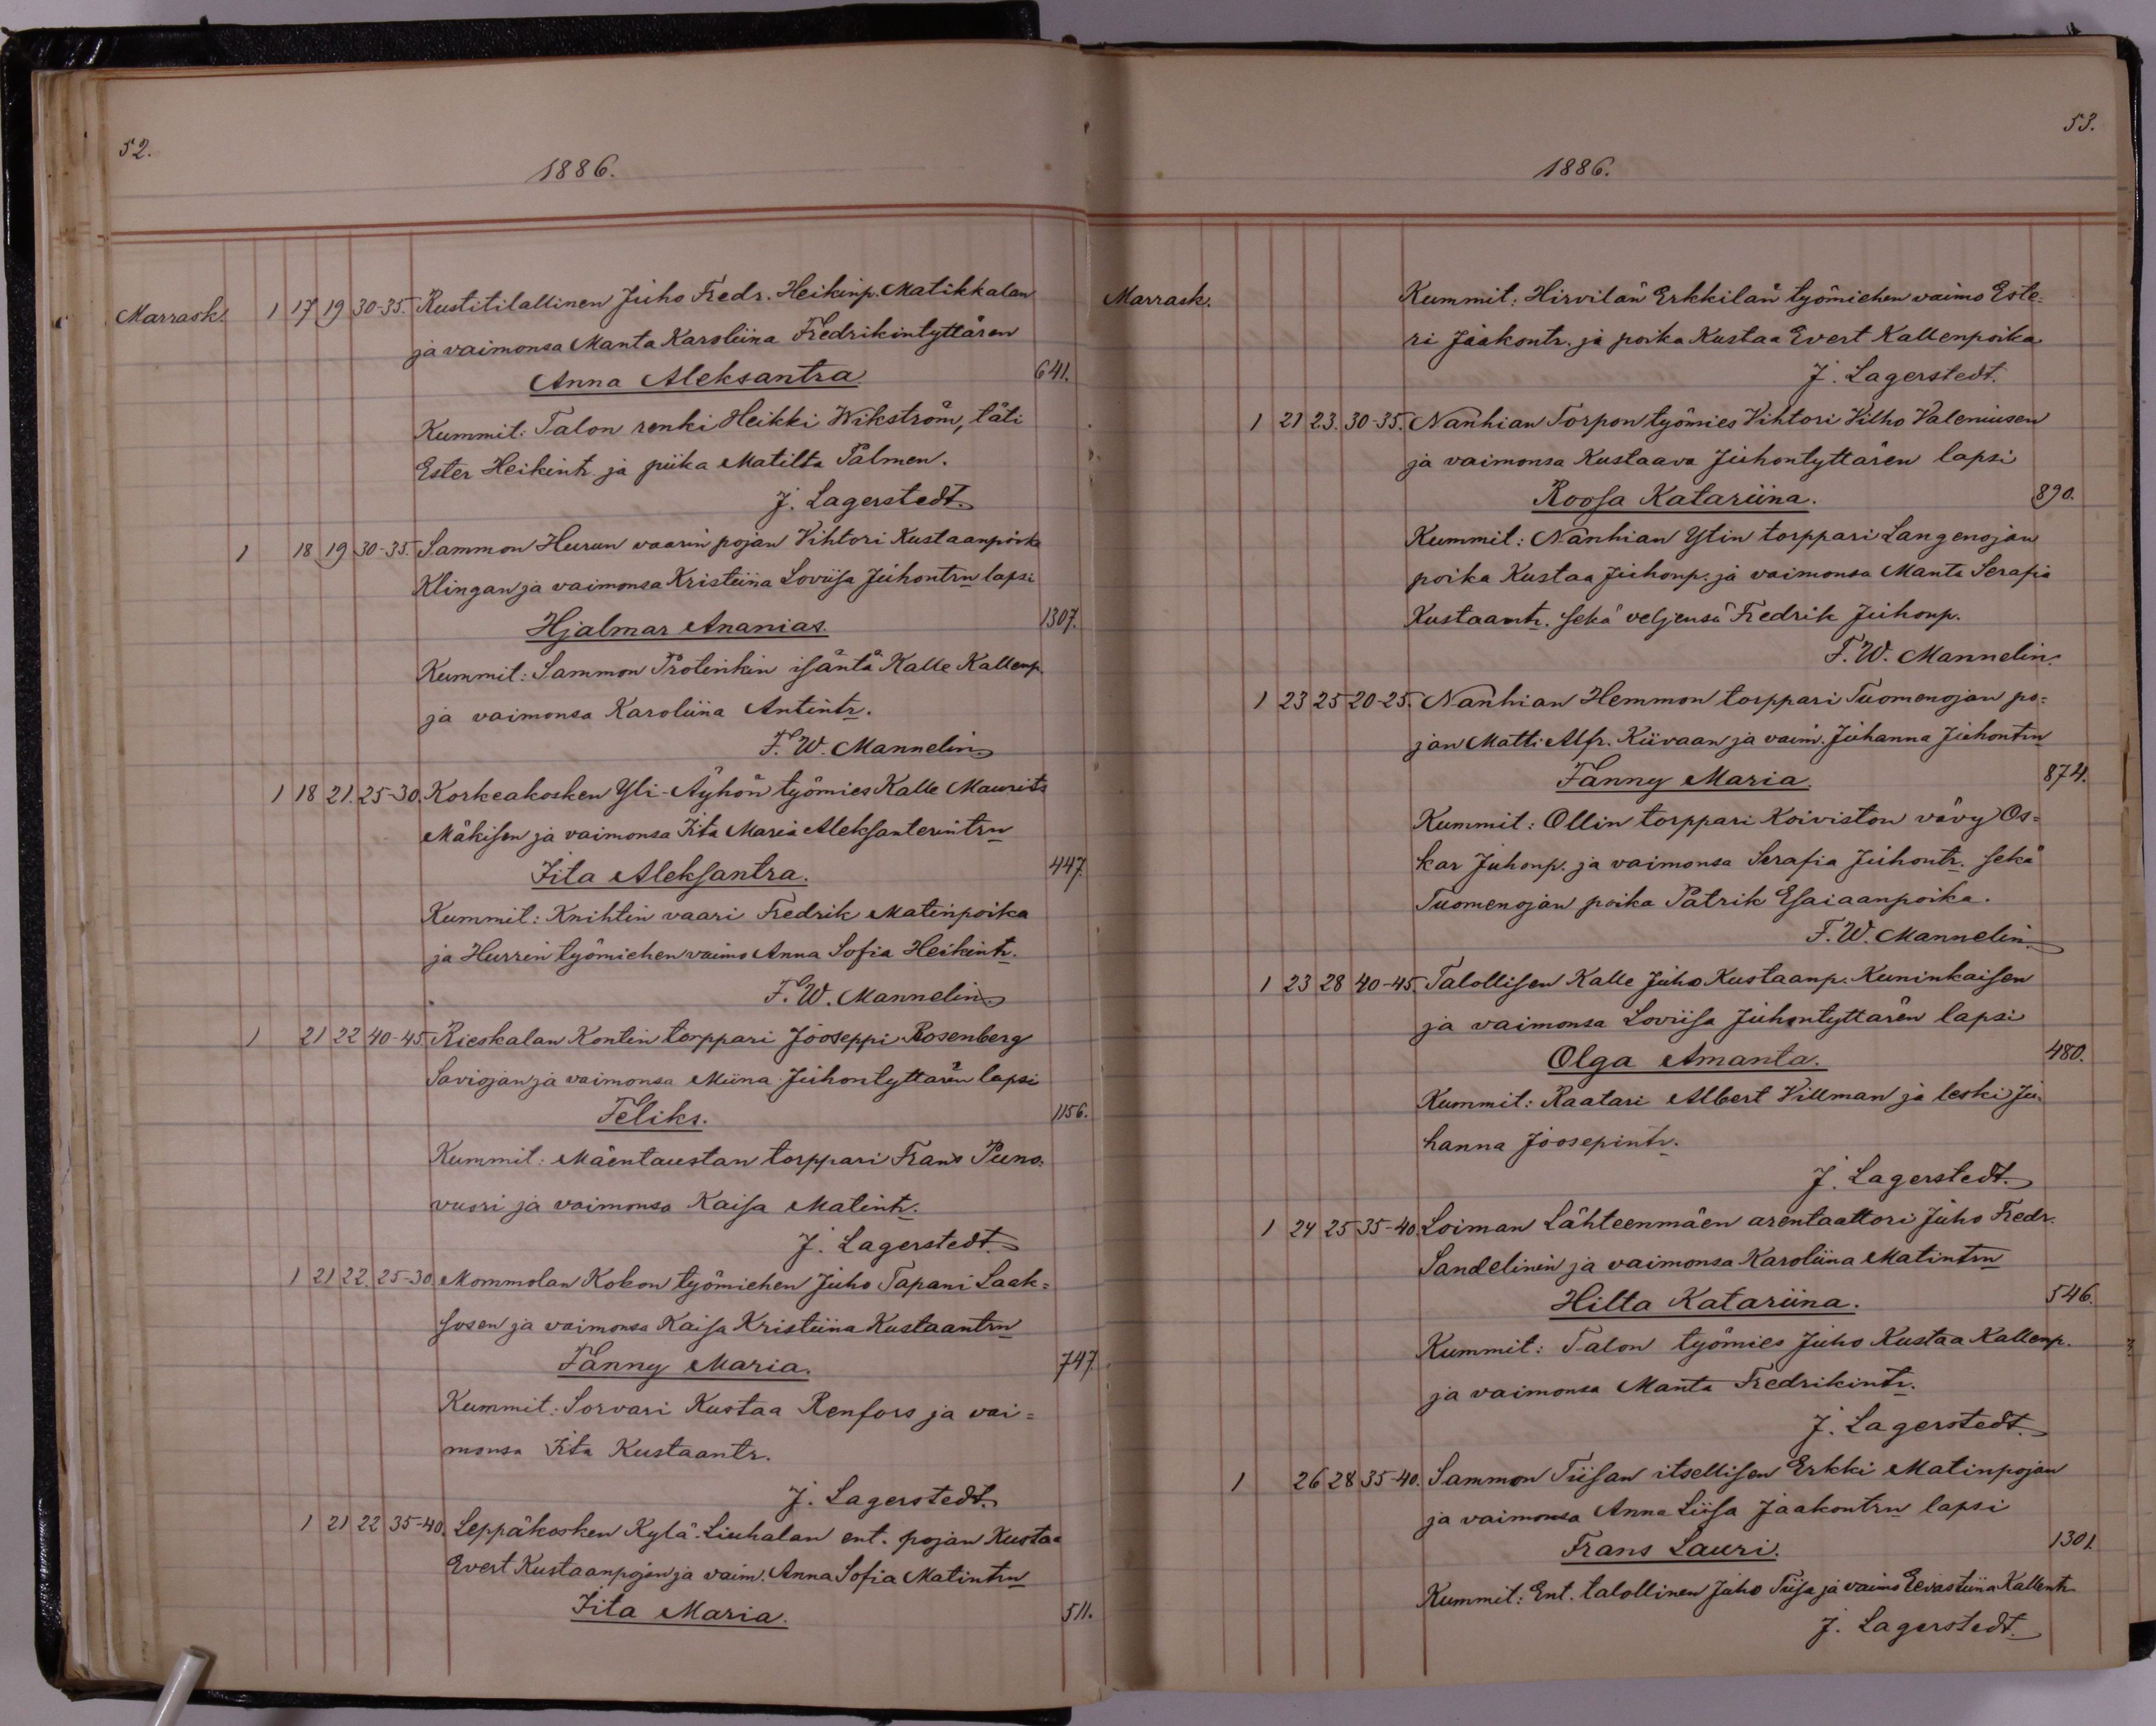 52.
1886.
Marrask. 1 17 19 30-35. Rustitilallinen Juho Fredr. Heikinp. Matikkalan
ja vaimonsa Manta Karoliina Fredrikintyttären
Anna Aleksantra 641.
Kummit: Talon renki Heikki Wikström, täti
Ester Heikint. ja piika Matilta Palmen.
J. Lagerstedt.
1 18 19 30-35. Sammon Hurun vaarin pojan Vihtori Kustaanpoika
Klingan ja vaimonsa Kristiina Loviisa Juhontrn lapsi
Hjalmar Ananias. 1307.
Kummit: Sammon Protinkin isäntä Kalle Kallenp.
ja vaimonsa Karoliina Antintr.
F. W. Mannelin.
1 18 21. 25-30. Korkeakosken Yli-Äyhön työmies Kalle Maurits
Mäkisen ja vaimonsa Iita Maria Aleksanterintrn
Iita Aleksantra. 447.
Kummit: Knihtin vaari Fredrik Matinpoika
ja Hurrin työmiehen vaimo Anna Sofia Heikintr.
F. W. Mannelin.
1 21 22 40-45. Rieskalan Kontin torppari Jooseppi Rosenberg
Saviojan ja vaimonsa Miina Juhontyttären lapsi
Feliks. 1156.
Kummit: Mäentaustan torppari Frans Puno-
vuori ja vaimonsa Kaisa Matintr.
J. Lagerstedt.
1 21 22. 25-30. Mommolan Kokon työmiehen Juho Tapani Laak-
sosen ja vaimonsa Kaisa Kristiina Kustaantrn
Fanny Maria. 747.
Kummit: Sorvari Kustaa Renfors ja vai-
monsa Iita Kustaantr.
J. Lagerstedt.
1 21 22 35-40. Leppäkosken Kylä-Liuhalan ent. pojan Kustaa
Evert Kustaanpojan ja vaim. Anna Sofia Matintrn
Iita Maria. 511.
53.
1886.
Marrask. Kummit: Hirvilän Erkkilän työmiehen vaimo Este-
ri Jaakontr. ja poika Kustaa Evert Kallenpoika
J. Lagerstedt.
1 21 23. 30-35. Nanhian Torpon työmies Vihtori Vilho Valeniusen
ja vaimonsa Kustaava Juhontyttären lapsi
Roosa Katariina. 890.
Kummit: Nanhian Ylin torppari Langenojan
poika Kustaa Juhonp. ja vaimonsa Manta Serafia
Kustaantr. sekä veljensä Fredrik Juhonp.
F. W. Mannelin.
1 23 25 20-25. Nanhian Hemmon torppari Tuomenojan po-
jan Matti Alfr. Kiivaan ja vaim. Juhanna Juhontrn
Fanny Maria. 874.
Kummit: Ollin torppari Koiviston vävy Os-
kar Juhonp. ja vaimonsa Serafia Juhontr. sekä
Tuomenojan poika Patrik Esaiaanpoika.
F. W. Mannelin.
1 23 28 40-45. Talollisen Kalle Juho Kustaanp. Kuninkaisen
ja vaimonsa Loviisa Juhontyttären lapsi
Olga Amanta. 480.
Kummit: Raatari Albert Villman ja leski Ju-
hanna Joosepintr.
J. Lagerstedt.
1 24 25 35-40. Loiman Lähteenmäen arentaattori Juho Fredr.
Sandelinin ja vaimonsa Karoliina Matintrn
Hilta Katariina. 546.
Kummit: Talon työmies Juho Kustaa Kallenp.
ja vaimonsa Manta Fredrikintr.
J. Lagerstedt.
1 26 28 35-40. Sammon Tiisan itsellisen Erkki Matinpojan
ja vaimonsa Anna Liisa Jaakontrn lapsi
Frans Lauri. 1301.
Kummit: Ent. talollinen Juho Tiisa ja vaimo Eevastiina Kallentr.
J. Lagerstedt.